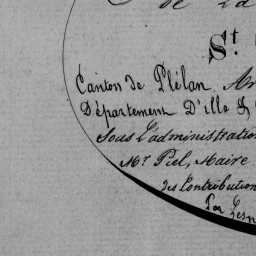 de la
St.
Canton de Plélan, Ar
Département D'Ille &
Sous l'administration
Mr. Piel, Maire
des Contribution
Par